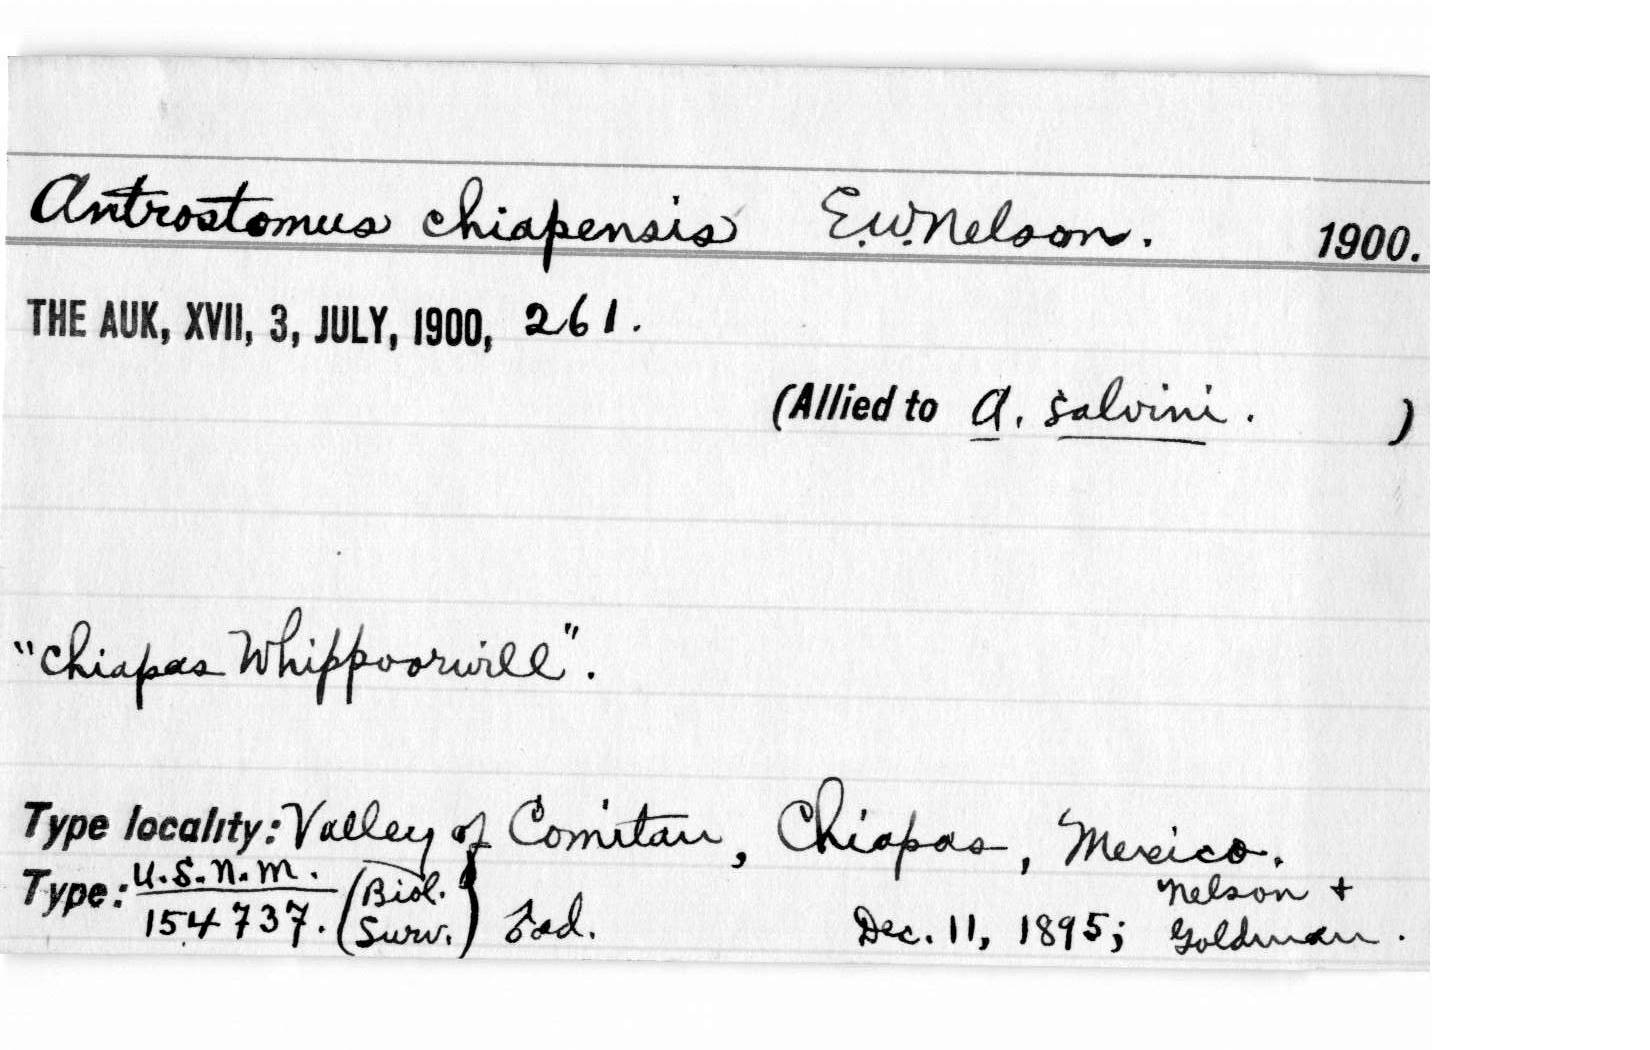 Antrostomus chiapensis E.W. Nelson. 1900.
THE AUK, XVII, 3, JULY, 1900, 261.
(Allied to A. salvini. )
"Chiapas Whippoorwill".
Type locality: Valley of Comitan, Chiapas, Mexico.
Type: U.S.N.M. 154737. (Biol. Surv.) ad. Dec. 11, 1895; Nelson + Goldman.